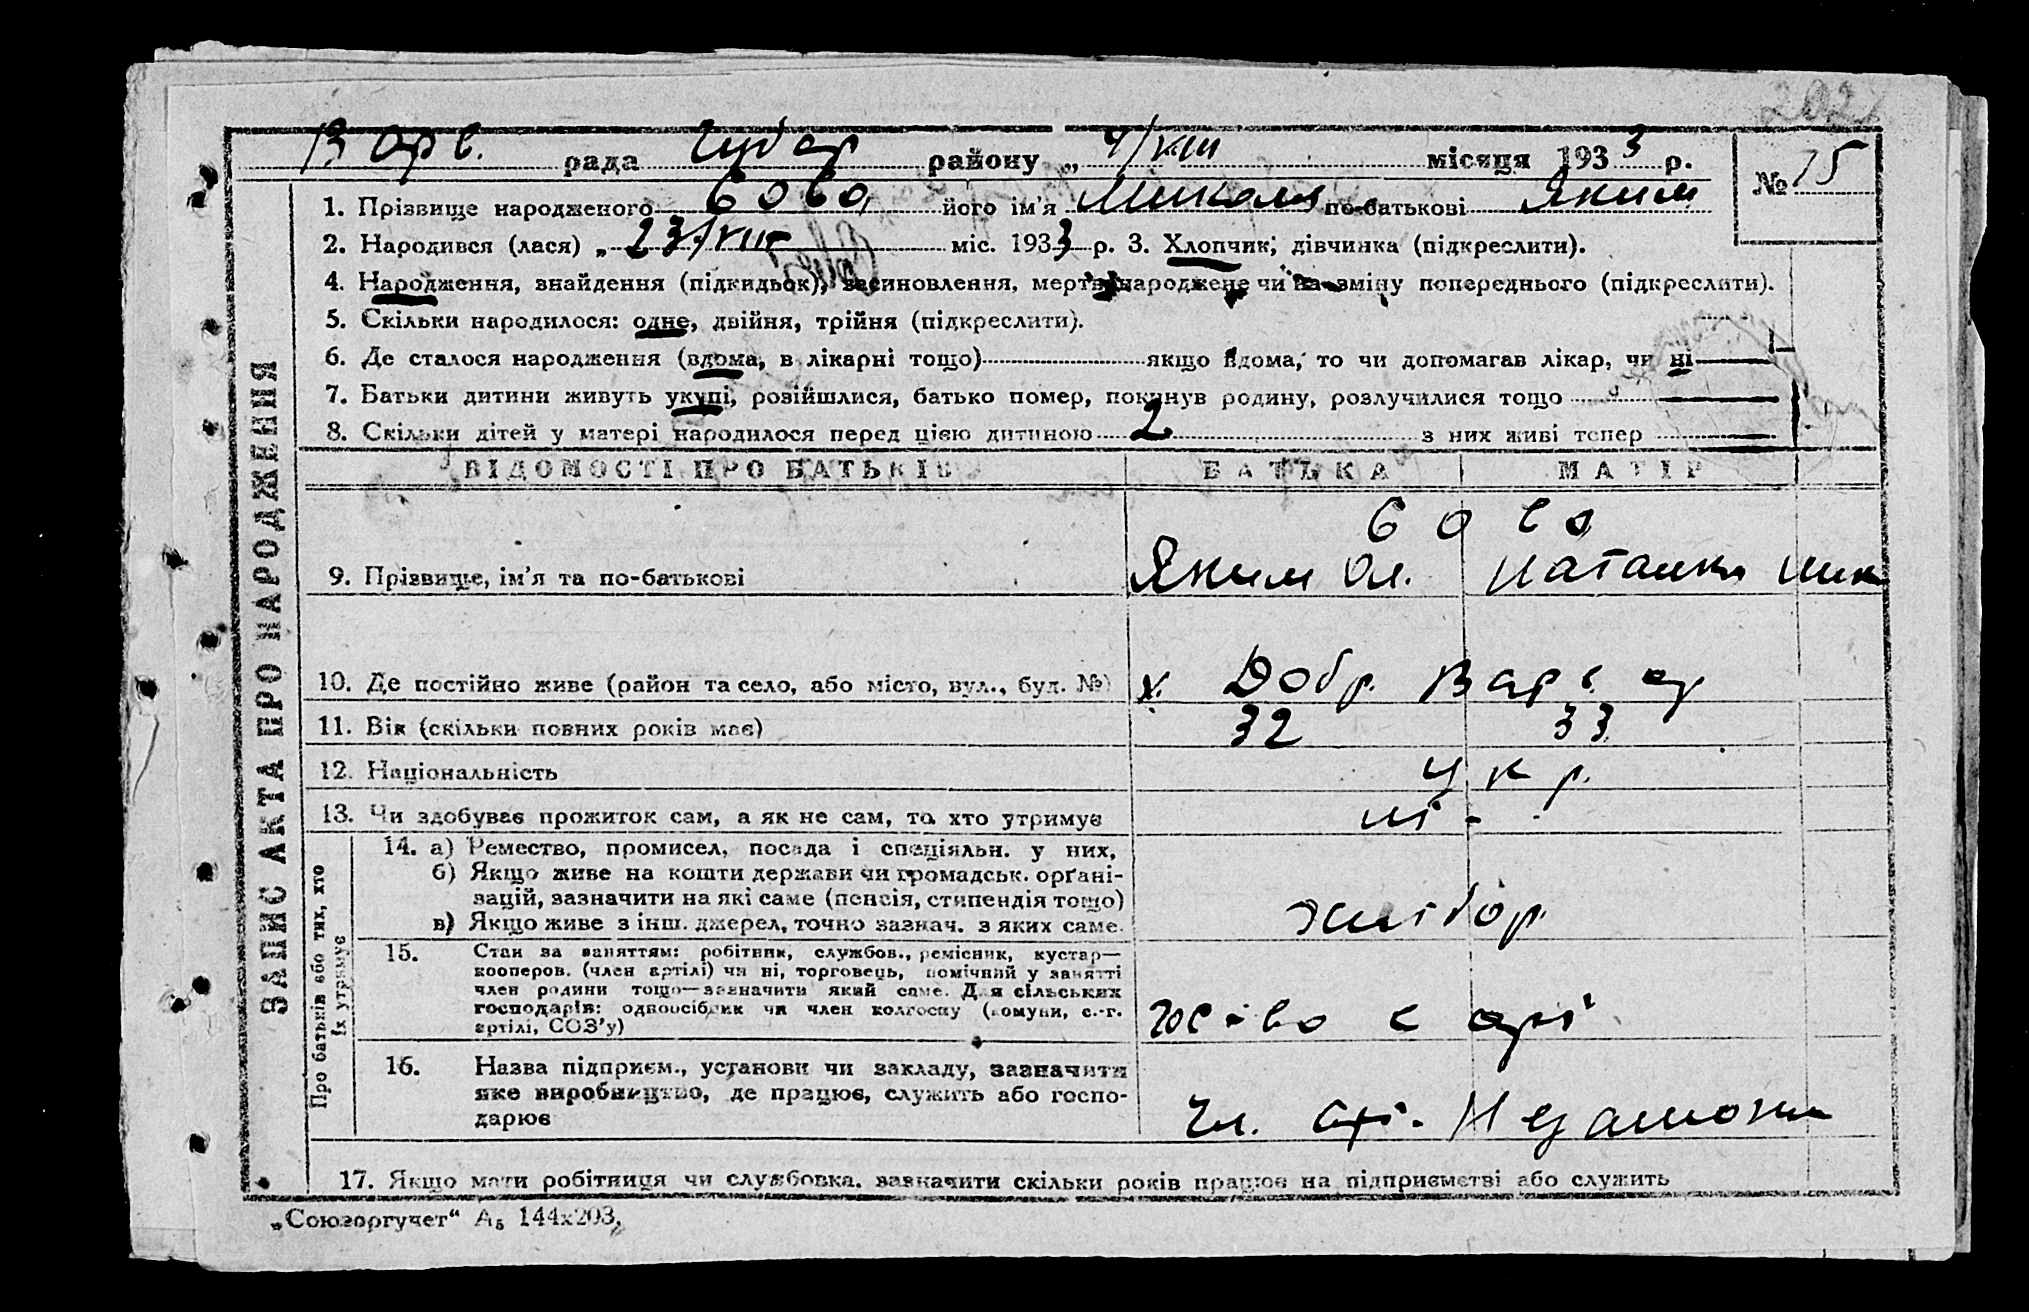 202
Варв. рада Чубар району „ 4/VIII місяця 1933 р.
№ 15
1. Прізвище народженого Бова його ім'я Микола по-батькові Яким
2. Народився (лася) „ 23/VIII міс. 1933 р. 3. Хлопчик, дівчинка (підкреслити).
4. Народження, знайдення (підкидьок), засиновлення, мертвонароджене чи на зміну попереднього (підкреслити).
5. Скільки народилося: одне, двійня, трійня (підкреслити).
6. Де сталося народження (вдома, в лікарні тощо) якщо вдома, то чи допомагав лікар, чи ні
7. Батьки дитини живуть укупі, розійшлися, батько помер, покинув родину, розлучилися тощо
8. Скільки дітей у матері народилося перед цією дитиною 2 з них живі тепер
ЗАПИС АКТА ПРО НАРОДЖЕННЯ
ВІДОМОСТІ ПРО БАТЬКІВ БАТЬКА МАТІР
Бова
9. Прізвище, ім'я та по-батькові Яким Ол. Наталка Мик
10. Де постійно живе (район та село, або місто, вул., буд. №) х. Добр. Варв.
11. Вік (скільки повних років має) 32 33
12. Національність Укр.
13. Чи здобуває прожиток сам, а як не сам, то хто утримує ні -
Про батьків або тих, хто їх утримує
14. а) Ремество, промисел, посада і спеціяльн. у них,
б) Якщо живе на кошти держави чи громадськ. орґані-
зацій, зазначити на які саме (пенсія, стипендія тощо)
в) Якщо живе з інш. джерел, точно зазнач. з яких саме. хлібор.
15. Стан за заняттям: робітник, службов., ремісник, кустар—
кооперов. (член артілі) чи ні, торговець, помічний у занятті
член родини тощо—зазначити який саме. Для сільських
господарів: одноосібник чи член колгоспу (комуни, с.-г.
артілі, СОЗ'у)
16. Назва підприєм., установи чи закладу, зазначити
яке виробництво, де працює, служить або госпо-
дарює Чл. арт. Незаможн
17. Якщо мати робітниця чи службовка, зазначити скільки років працює на підприємстві або служить
„Союзоргучет“ А₅ 144х203.